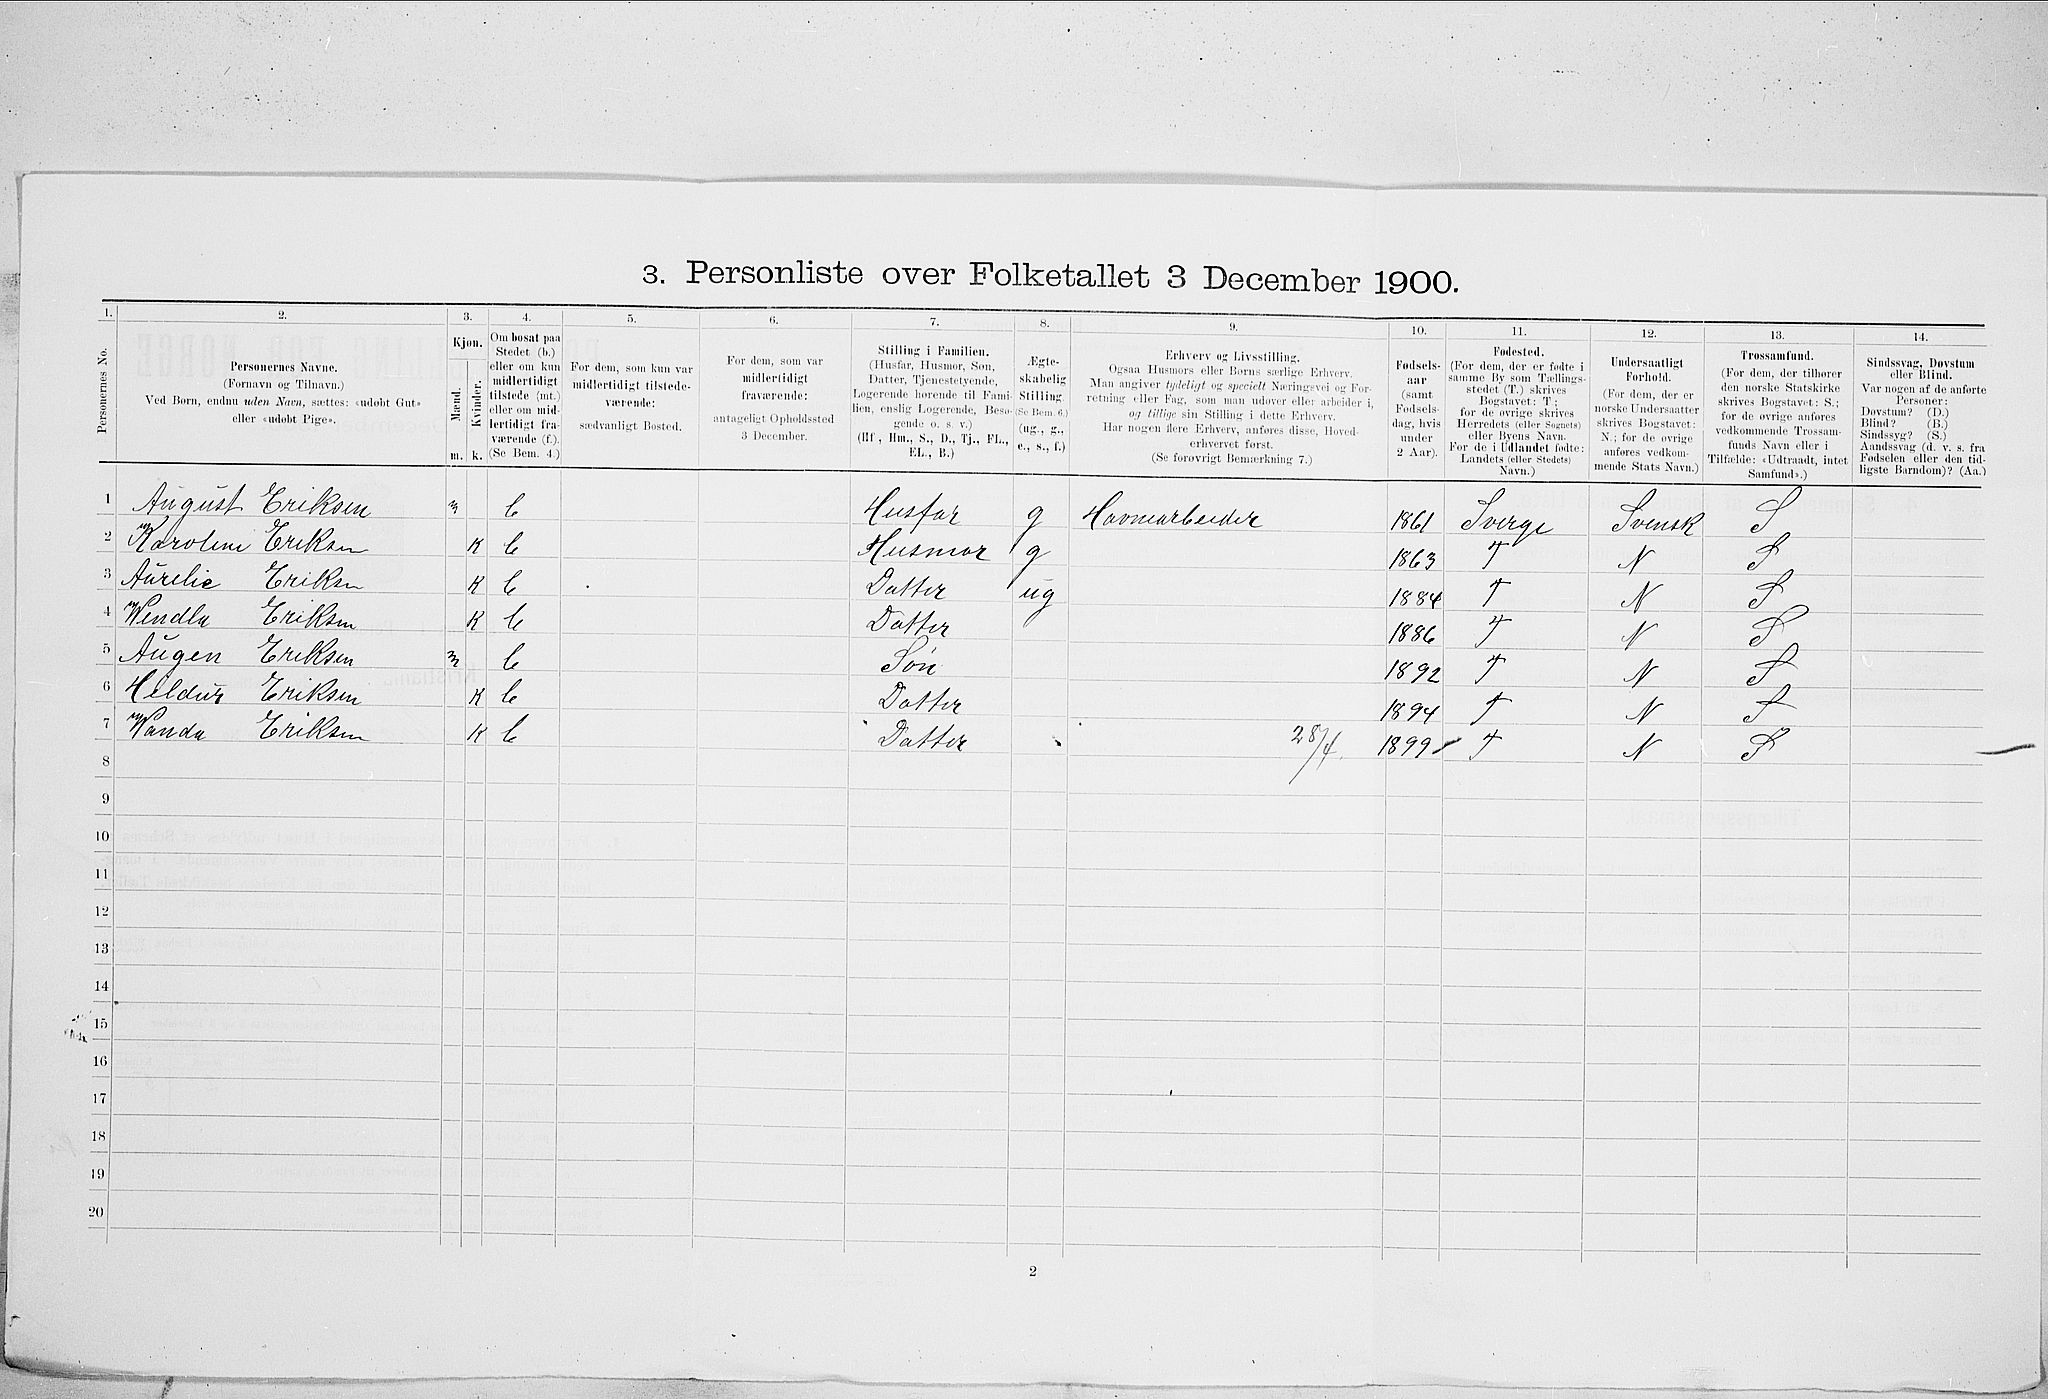 3. Personliste over Folketallet 3 December 1900.
1. 2. 3. 4. 5. 6. 7. 8. 9. 10. 11. 12. 13. 14.
Personernes No.
Personernes Navne.
(Fornavn og Tilnavn.)
Ved Børn, endnu uden Navn, sættes: «udøbt Gut»
eller «udøbt Pige».
Kjøn.
Mænd.
Kvinder.
m. k.
Om bosat paa
Stedet (b.)
eller om kun
midlertidigt
tilstede (mt.)
eller om mid-
lertidigt fra-
værende (f.).
(Se Bem. 4.)
For dem, som kun var
midlertidigt tilstede-
værende:
sædvanligt Bosted.
For dem, som var
midlertidigt
fraværende:
antageligt Opholdssted
3 December.
Stilling i Familien.
(Husfar, Husmor, Søn,
Datter, Tjenestetyende,
Logerende hørende til Fami-
lien, enslig Logerende, Besø-
gende o. s. v.)
(Hf., Hm., S., D., Tj., FL.,
EL., B.)
Ægte-
skabelig
Stilling.
(Se Bem. 6.)
(ug., g.,
e., s., f.)
Erhverv og Livsstilling.
Ogsaa Husmors eller Børns særlige Erhverv.
Man angiver tydeligt og specielt Næringsvei og For-
retning eller Fag, som man udøver eller arbeider i,
og tillige sin Stilling i dette Erhverv.
Har nogen flere Erhverv, anføres disse, Hoved-
erhvervet først.
(Se forøvrigt Bemærkning 7.)
Fødsels-
aar
(samt
Fødsels-
dag, hvis
under
2 Aar).
Fødested.
(For dem, der er fødte i
samme By som Tællings-
stedet (T.) skrives
Bogstavet: T;
for de øvrige skrives
Herredets (eller Sognets)
eller Byens Navn.
For de i Udlandet fødte:
Landets (eller Stedets)
Navn.)
Undersaatligt
Forhold.
(For dem, der er
norske Undersaatter
skrives Bogstavet:
N.; for de øvrige
anføres vedkom-
mende Stats Navn.)
Trossamfund.
(For dem, der tilhører
den norske Statskirke
skrives Bogstavet: S.;
for de øvrige anføres
vedkommende Trossam-
funds Navn eller i
Tilfælde: «Udtraadt, intet
Samfund».)
Sindssvag, Døvstum
eller Blind.
Var nogen af de anførte
Personer:
Døvstum? (D.)
Blind? (B.)
Sindssyg? (S.)
Aandssvag (d. v. s. fra
Fødselen eller den tid-
ligste Barndom)? (Aa.)
1 August Eriksen m b Husfar g Havnearbeider 1861 Sverge Svensk S
2 Karoline Eriksen K b Husmor g 1863 T N S
3 Aurelie Eriksen K b Datter ug 1884 T N S
4 Wendla Eriksen K b Datter 1886 T N S
5 Augen Eriksen m b Søn 1892 T N S
6 Heldur Eriksen K b Datter 1894 T N S
7 Wanda Eriksen K b Datter 28/4. 1899 T N S
8
9
10
11
12
13
14
15
16
17
18
19
20
2